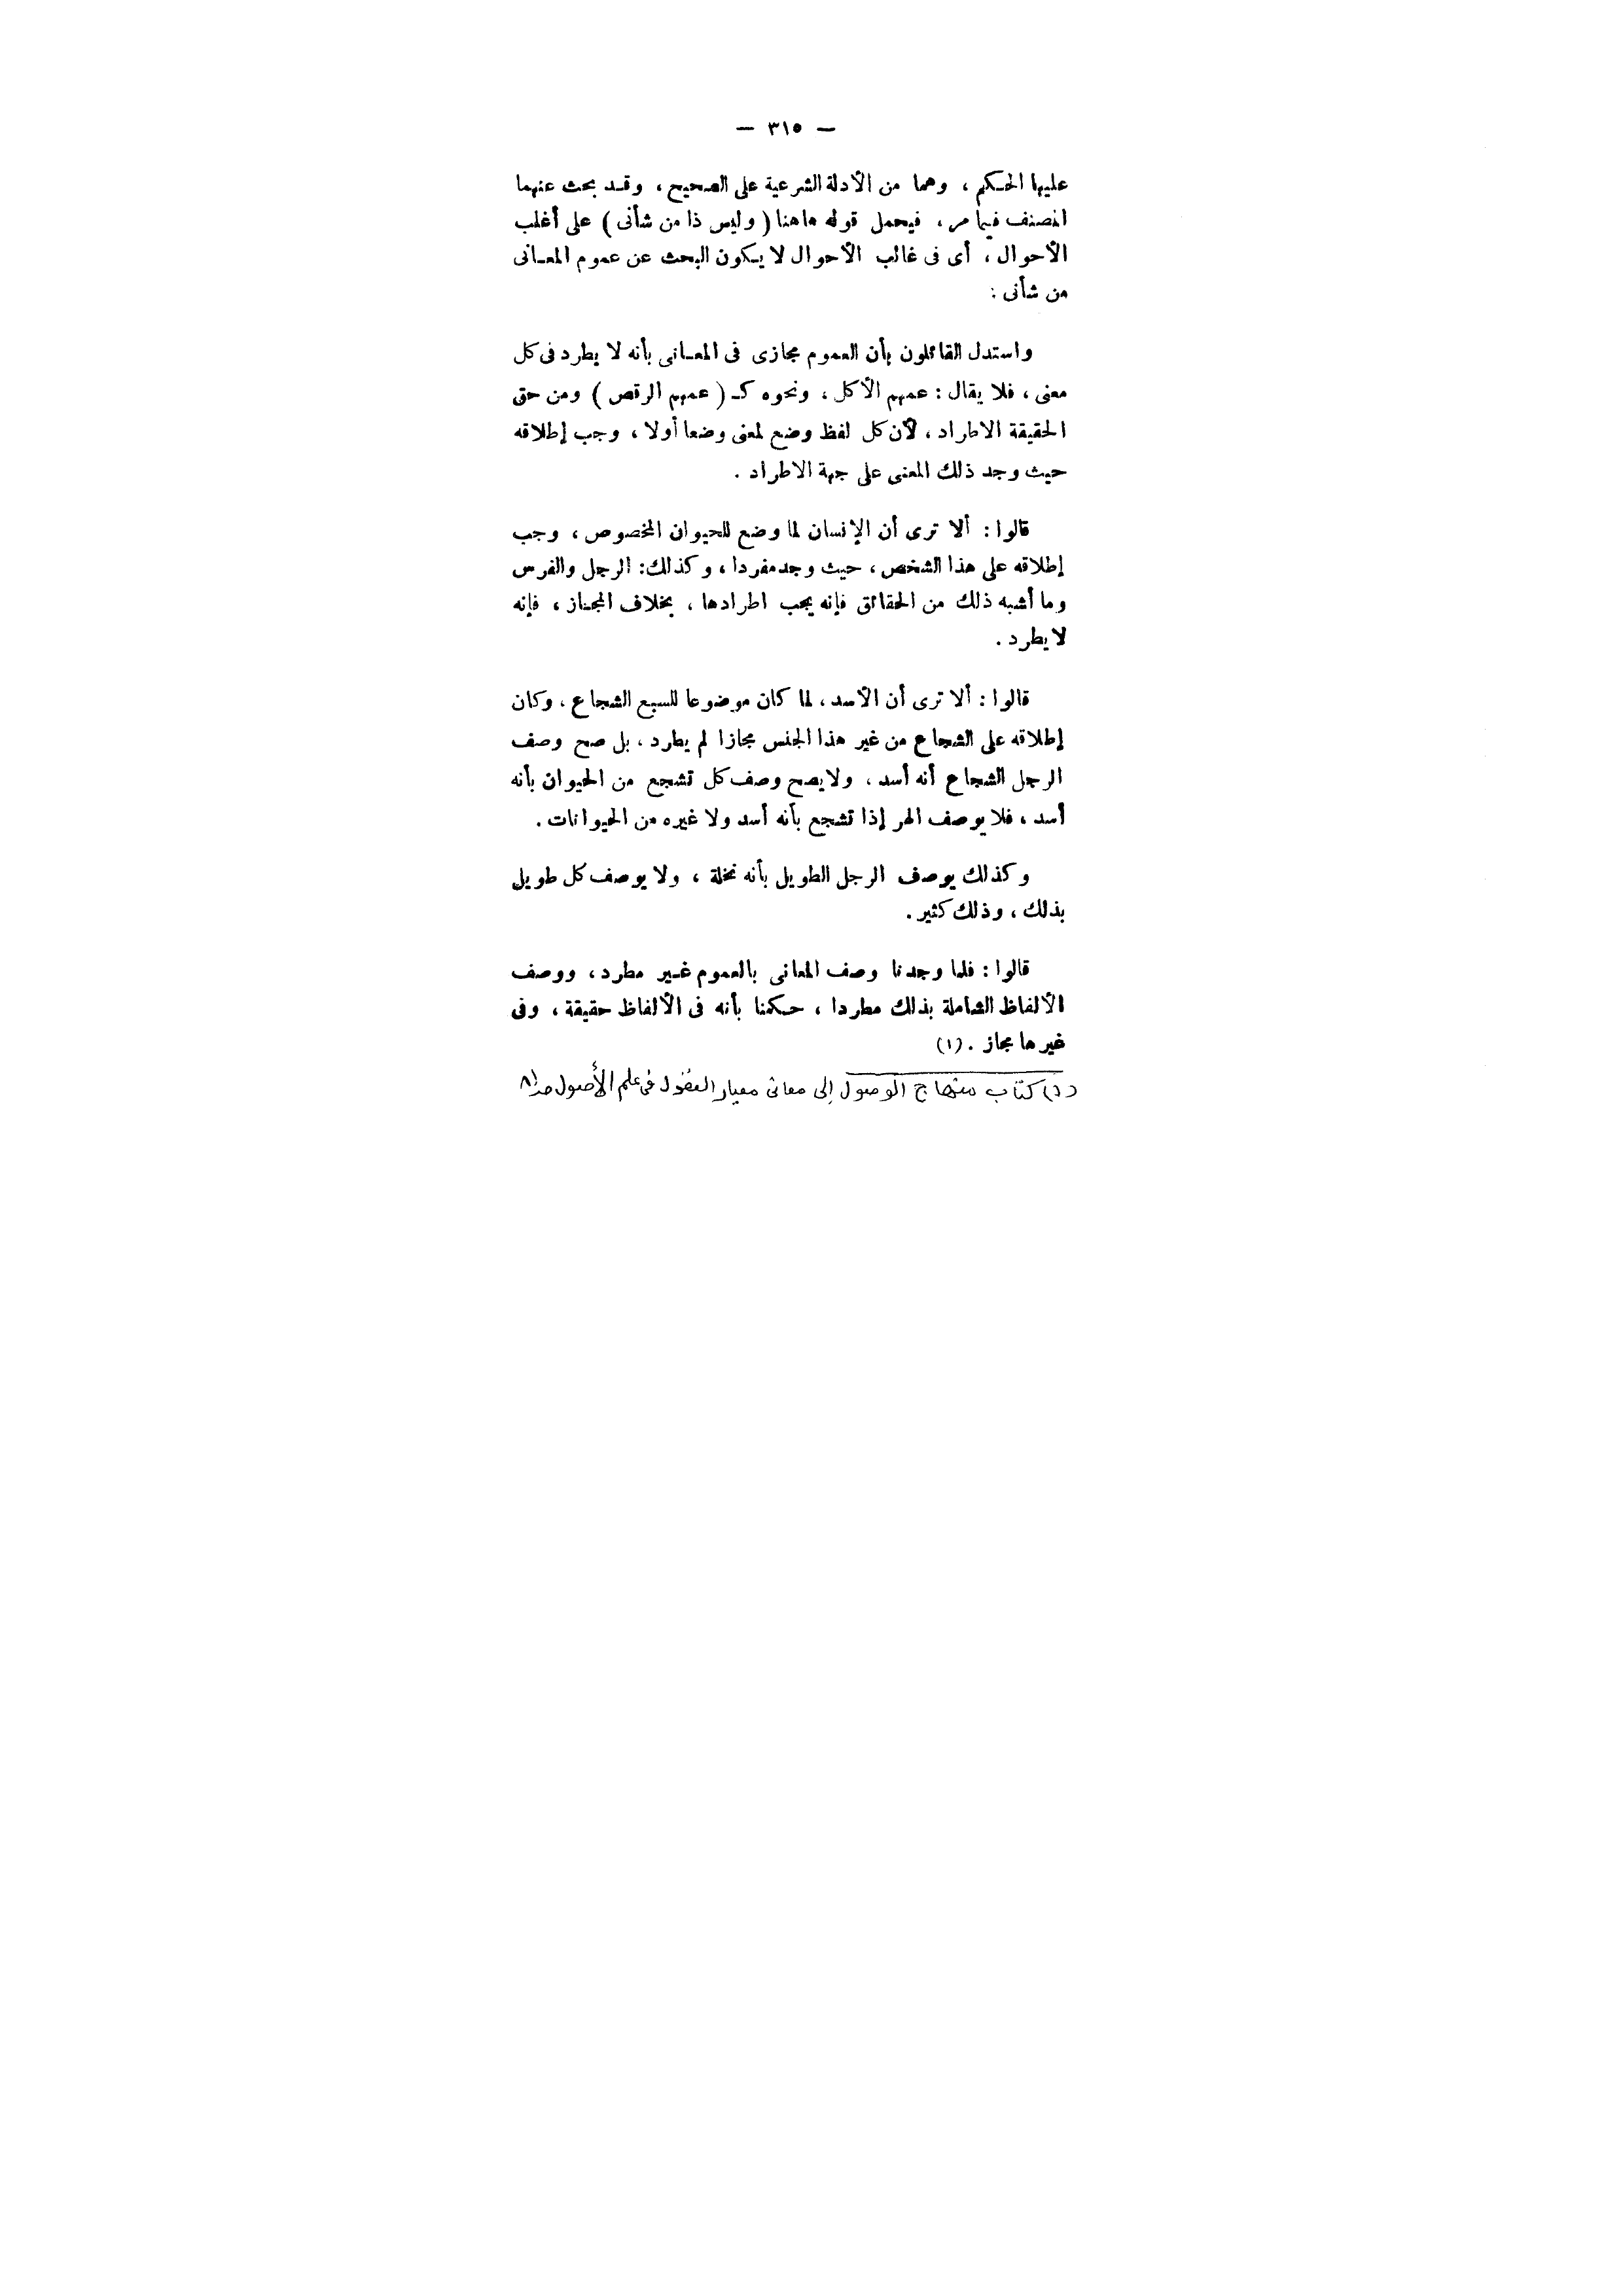 — ٣١٥ —
عليها الحكم ، وهما من الأدلة الشرعية على الصحيح ، وقد بحث عنهما
المصنف فيما مر ، فيحمل قوله هاهنا ( وليس ذا من شأنى ) على أغلب
الأحوال ، أى فى غالب الأحوال لا يكون البحث عن عموم المعانى
من شأنى :
واستدل القائلون بأن العموم مجازى فى المعانى بأنه لا يطرد فى كل
معنى ، فلا يقال : عمهم الأكل ، ونحوه كـ ( عمهم الرقص ) ومن حق
الحقيقة الاطراد ، لأن كل لفظ وضع لمعنى وضعا أولا ، وجب إطلاقه
حيث وجد ذلك المعنى على جهة الاطراد .
قالوا : ألا ترى أن الإنسان لما وضع للحيوان المخصوص ، وجب
إطلاقه على هذا الشخص ، حيث وجد مفردا ، وكذلك : الرجل والفرس
وما أشبه ذلك من الحقائق فإنه يجب اطرادها ، بخلاف المجاز ، فإنه
لا يطرد .
قالوا : ألا ترى أن الأسد ، لما كان موضوعا للسبع الشجاع ، وكان
إطلاقه على الشجاع من غير هذا الجنس مجازا لم يطرد ، بل صح وصف
الرجل الشجاع أنه أسد ، ولا يصح وصف كل تشجع من الحيوان بأنه
أسد ، فلا يوصف الهر إذا تشجع بأنه أسد ولا غيره من الحيوانات .
وكذلك يوصف الرجل الطويل بأنه نخلة ، ولا يوصف كل طويل
بذلك ، وذلك كثير .
قالوا : فلما وجدنا وصف المعانى بالعموم غير مطرد ، ووصف
الألفاظ الشاملة بذلك مطردا ، حكمنا بأنه فى الألفاظ حقيقة ، وفى
غيرها مجاز . (١)
(١) كتاب منهاج الوصول إلى معانى معيار العقول فى علم الأصول